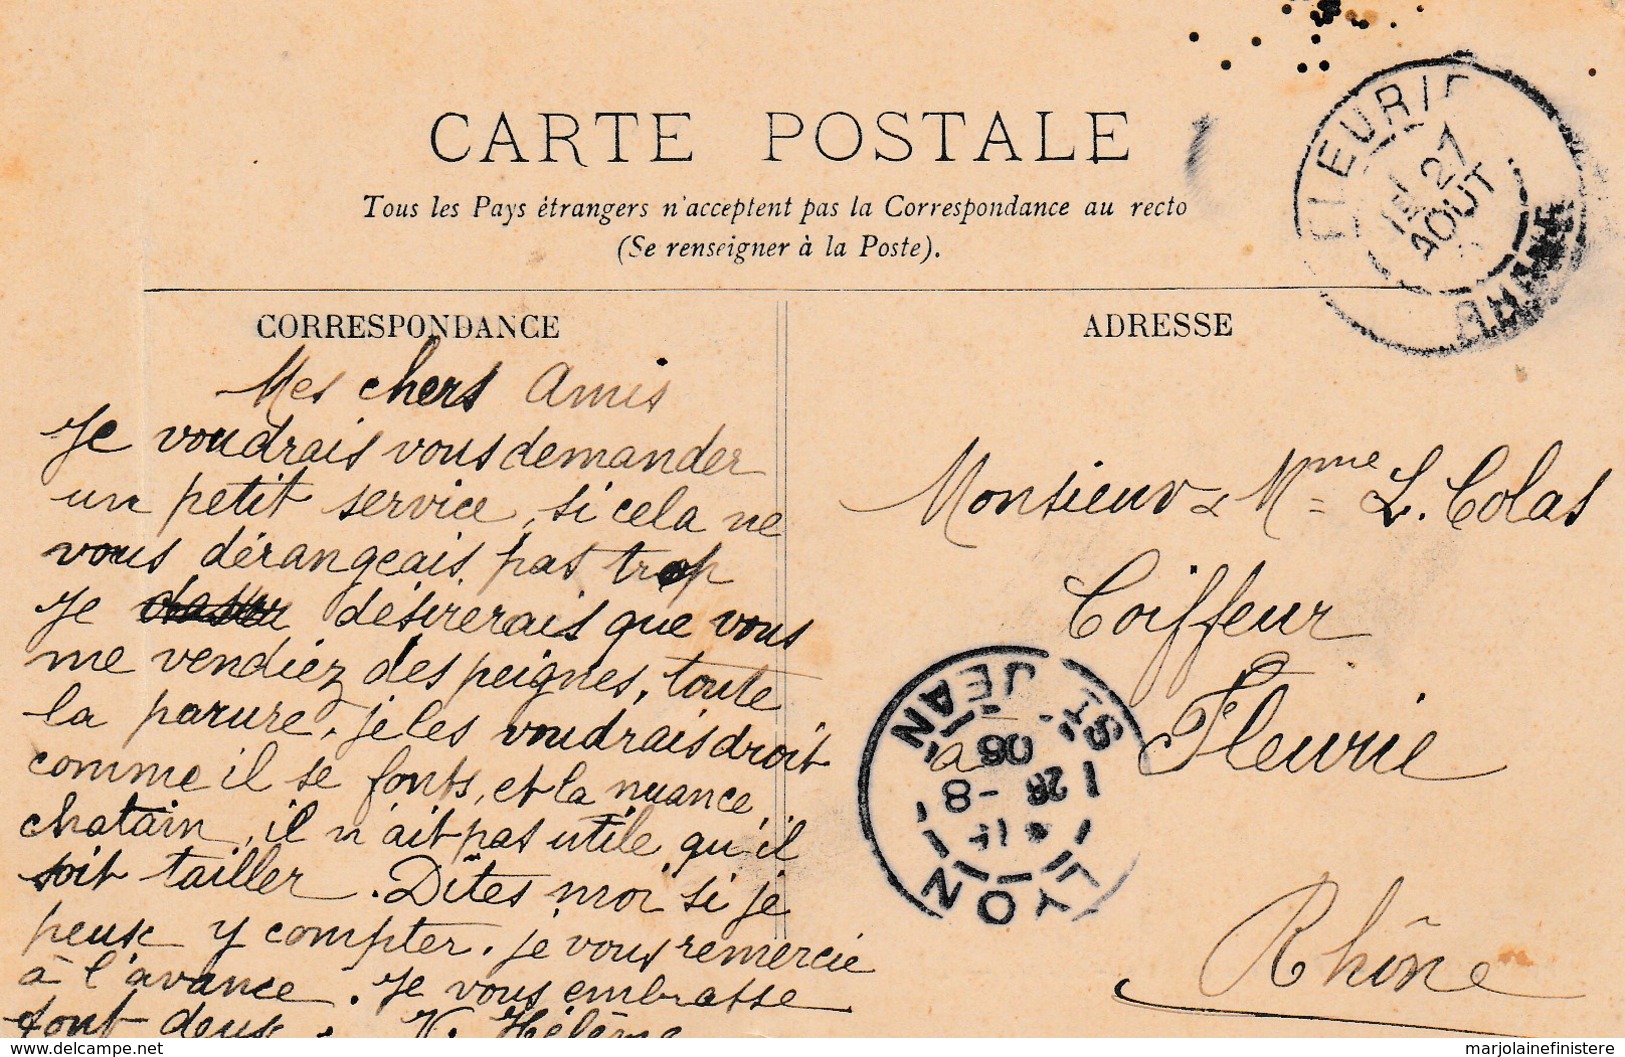 CARTE POSTALE
Tous les Pays étrangers n'acceptent pas la Correspondance au recto
(Se renseigner à la Poste).
FLEURIE
27
AOUT
RHONE
CORRESPONDANCE
Mes chers Amis
Je voudrais vous demander
un petit service, si cela ne
vous dérangeais pas trop
Je désirerais que vous
me vendiez des peignes, toute
la parure, je les voudrais droit
comme il se fonts, et la nuance
chatain, il n'ait pas utile qu'il
soit tailler. Dîtes moi si je
peux y compter. je vous remercie
à l'avance. Je vous embrasse
tout deux. V. Hélène
ADRESSE
Monsieur & Mme L. Colas
Coiffeur
à Fleurie
Rhône
LYON ST JEAN
8 - 28
06
marjolainefinistere